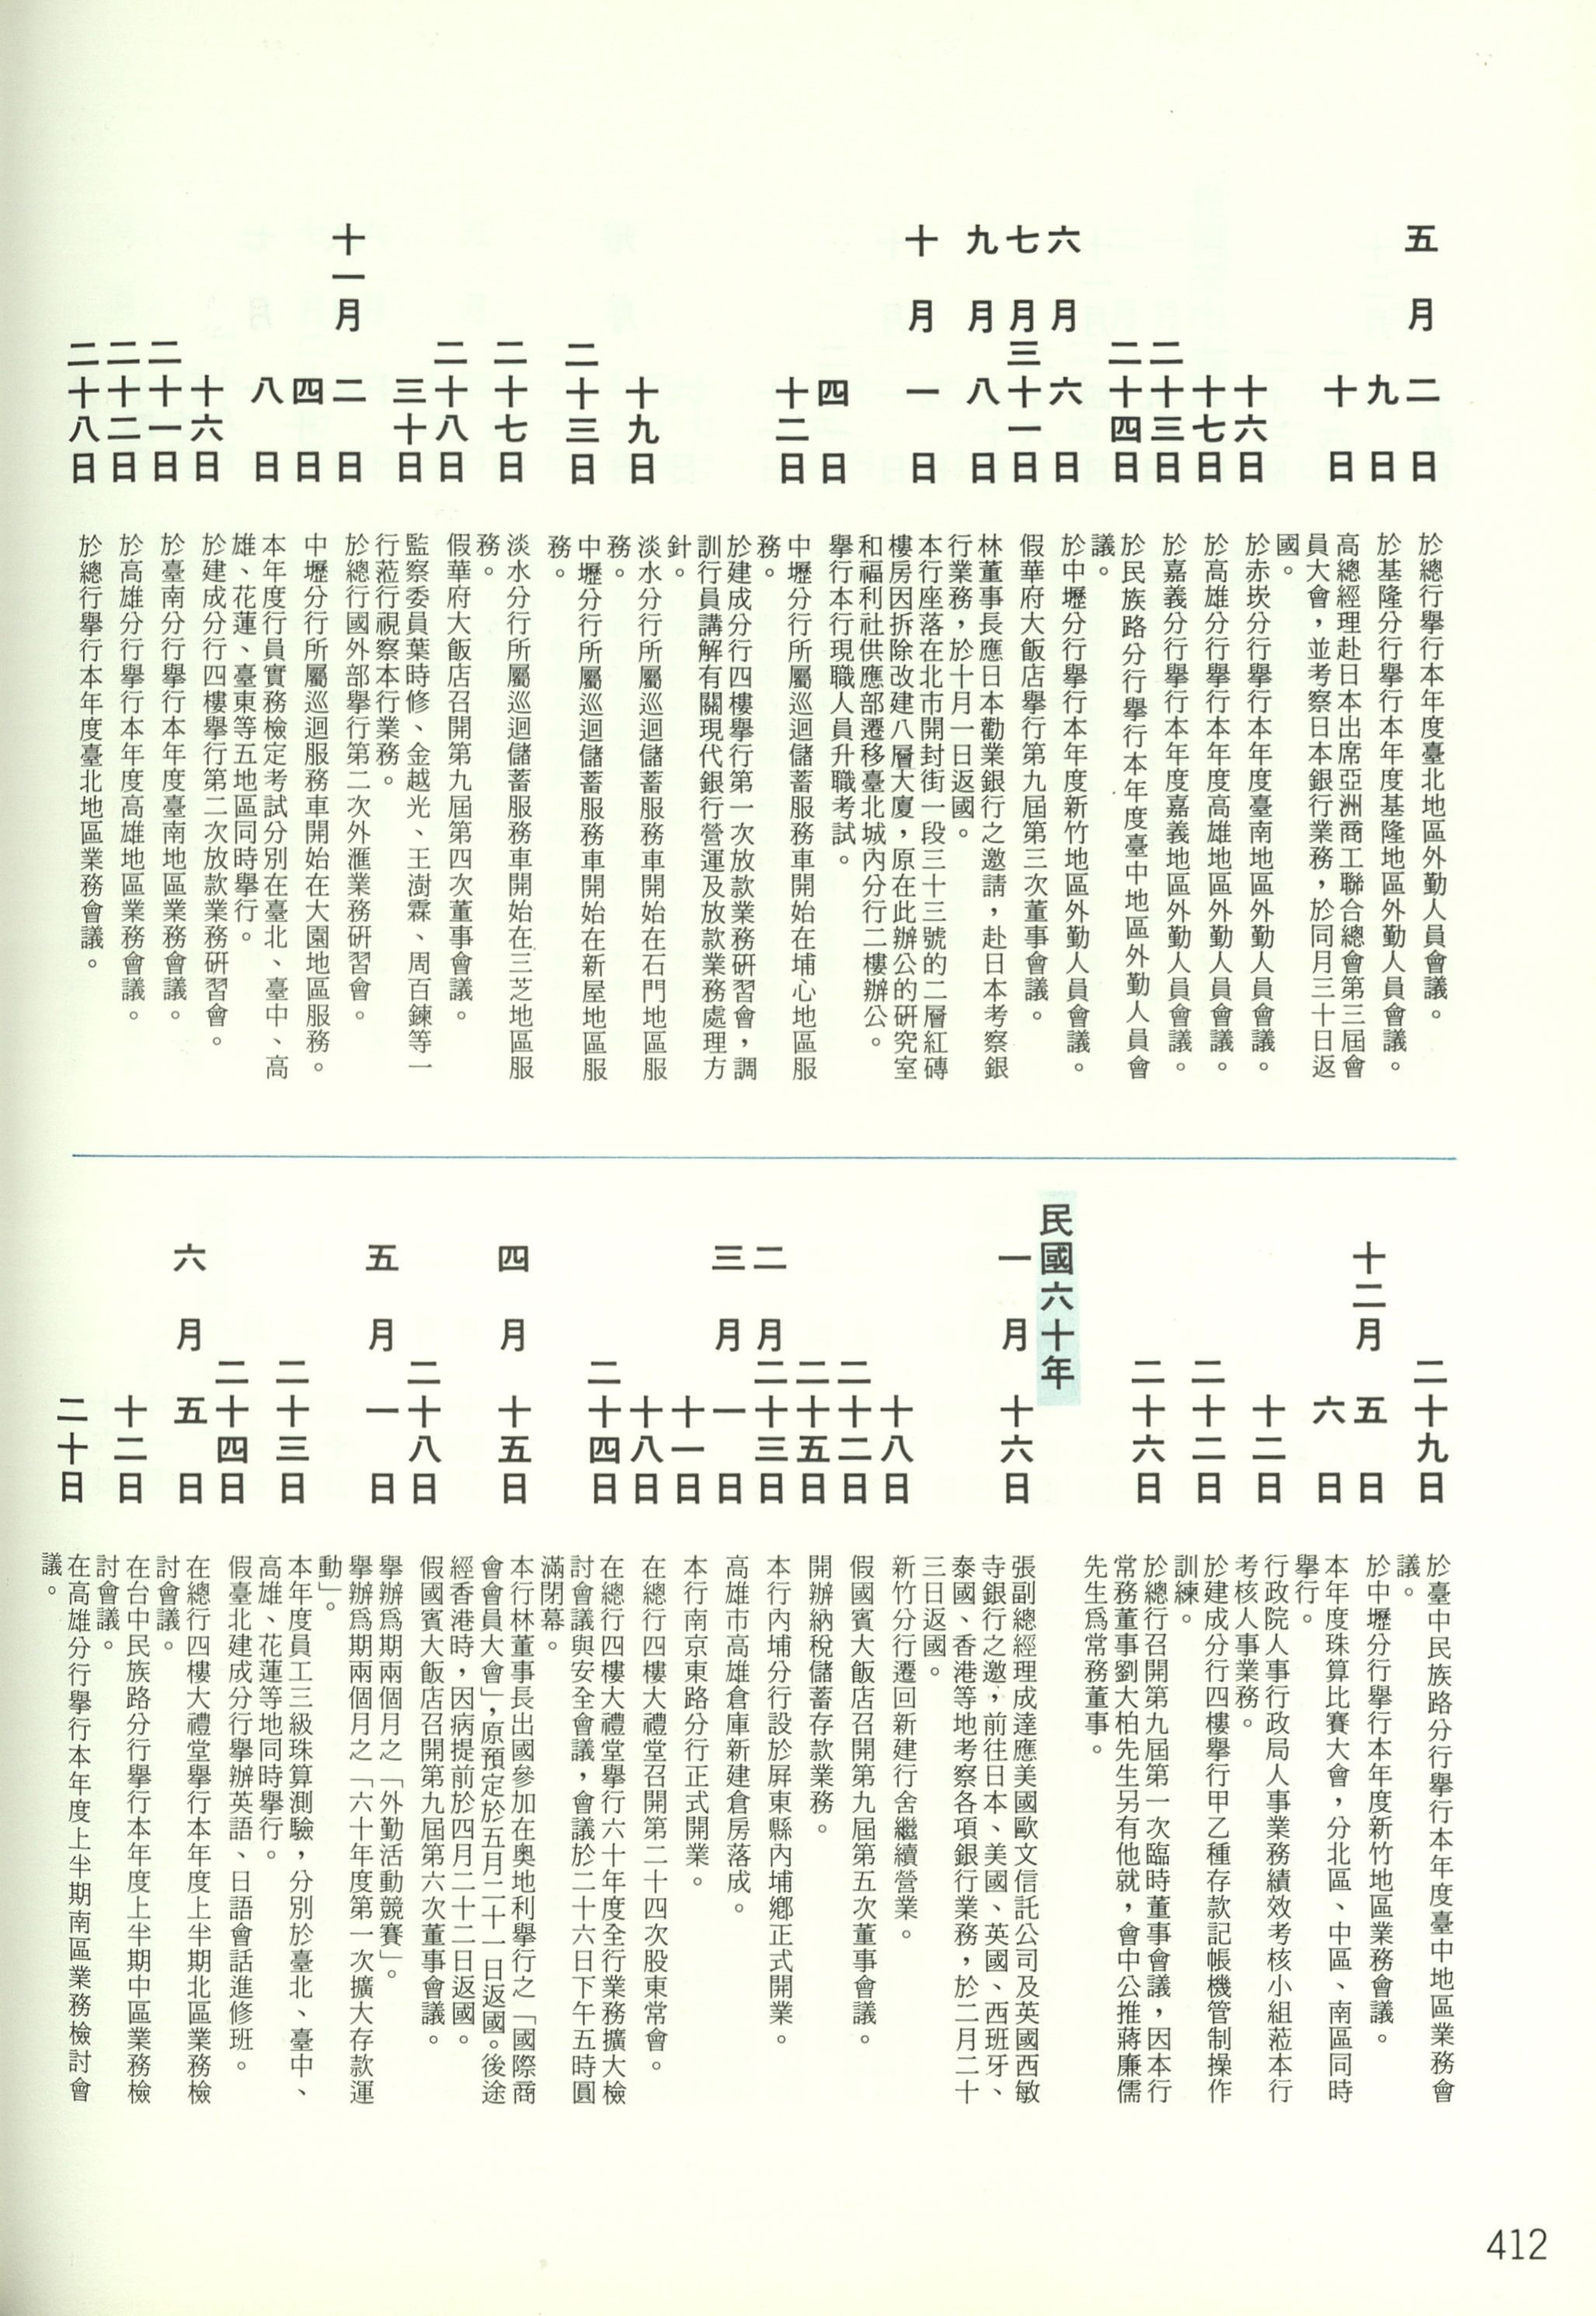 五月二日
於總行舉行本年度臺北地區外勤人員會議。
九日
於基隆分行舉行本年度基隆地區外勤人員會議。
十日
高總經理赴日本出席亞洲商工聯合總會第三屆會
員大會，並考察日本銀行業務，於同月三十日返
國。
十六日
於赤崁分行舉行本年度臺南地區外勤人員會議。
十七日
於高雄分行舉行本年度高雄地區外勤人員會議。
二十三日
於嘉義分行舉行本年度嘉義地區外勤人員會議。
二十四日
於民族路分行舉行本年度臺中地區外勤人員會
議。
六月六日
於中壢分行舉行本年度新竹地區外勤人員會議。
七月三十一日
假華府大飯店舉行第九屆第三次董事會議。
九月八日
林董事長應日本勸業銀行之邀請，赴日本考察銀
行業務，於十月一日返國。
十月一日
本行座落在北市開封街一段三十三號的二層紅磚
樓房因拆除改建八層大廈，原在此辦公的研究室
和福利社供應部遷移臺北城內分行二樓辦公。
四日
舉行本行現職人員升職考試。
十二日
中壢分行所屬巡迴儲蓄服務車開始在埔心地區服
務。
於建成分行四樓舉行第一次放款業務研習會，調
訓行員講解有關現代銀行營運及放款業務處理方
針。
十九日
淡水分行所屬巡迴儲蓄服務車開始在石門地區服
務。
二十三日
中壢分行所屬巡迴儲蓄服務車開始在新屋地區服
務。
二十七日
淡水分行所屬巡迴儲蓄服務車開始在三芝地區服
務。
二十八日
假華府大飯店召開第九屆第四次董事會議。
三十日
監察委員葉時修、金越光、王澍霖、周百鍊等一
行蒞行視察本行業務。
十一月二日
於總行國外部舉行第二次外滙業務研習會。
四日
中壢分行所屬巡迴服務車開始在大園地區服務。
八日
本年度行員實務檢定考試分別在臺北、臺中、高
雄、花蓮、臺東等五地區同時舉行。
十六日
於建成分行四樓舉行第二次放款業務研習會。
二十一日
於臺南分行舉行本年度臺南地區業務會議。
二十二日
於高雄分行舉行本年度高雄地區業務會議。
二十八日
於總行舉行本年度臺北地區業務會議。
二十九日
於臺中民族路分行舉行本年度臺中地區業務會
議。
十二月五日
於中壢分行舉行本年度新竹地區業務會議。
六日
本年度珠算比賽大會，分北區、中區、南區同時
舉行。
十二日
行政院人事行政局人事業務績效考核小組蒞本行
考核人事業務。
二十二日
於建成分行四樓舉行甲乙種存款記帳機管制操作
訓練。
二十六日
於總行召開第九屆第一次臨時董事會議，因本行
常務董事劉大柏先生另有他就，會中公推蔣廉儒
先生爲常務董事。
民國六十年
一月十六日
張副總經理成達應美國歐文信託公司及英國西敏
寺銀行之邀，前往日本、美國、英國、西班牙、
泰國、香港等地考察各項銀行業務，於二月二十
三日返國。
十八日
新竹分行遷回新建行舍繼續營業。
二十二日
假國賓大飯店召開第九屆第五次董事會議。
二十五日
開辦納稅儲蓄存款業務。
二月二十三日
本行內埔分行設於屏東縣內埔鄉正式開業。
三月一日
高雄市高雄倉庫新建倉房落成。
十一日
本行南京東路分行正式開業。
十八日
在總行四樓大禮堂召開第二十四次股東常會。
二十四日
在總行四樓大禮堂舉行六十年度全行業務擴大檢
討會議與安全會議，會議於二十六日下午五時圓
滿閉幕。
四月十五日
本行林董事長出國參加在奧地利舉行之「國際商
會會員大會」，原預定於五月二十一日返國。後途
經香港時，因病提前於四月二十二日返國。
二十八日
假國賓大飯店召開第九屆第六次董事會議。
五月一日
舉辦爲期兩個月之「外勤活動競賽」。
舉辦爲期兩個月之「六十年度第一次擴大存款運
動」。
二十三日
本年度員工三級珠算測驗，分別於臺北、臺中、
高雄、花蓮等地同時舉行。
二十四日
假臺北建成分行舉辦英語、日語會話進修班。
六月五日
在總行四樓大禮堂舉行本年度上半期北區業務檢
討會議。
十二日
在台中民族路分行舉行本年度上半期中區業務檢
討會議。
二十日
在高雄分行舉行本年度上半期南區業務檢討會
議。
412